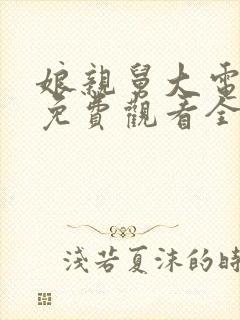 娘親舅大電
免費觀看全
淺若夏沫的時